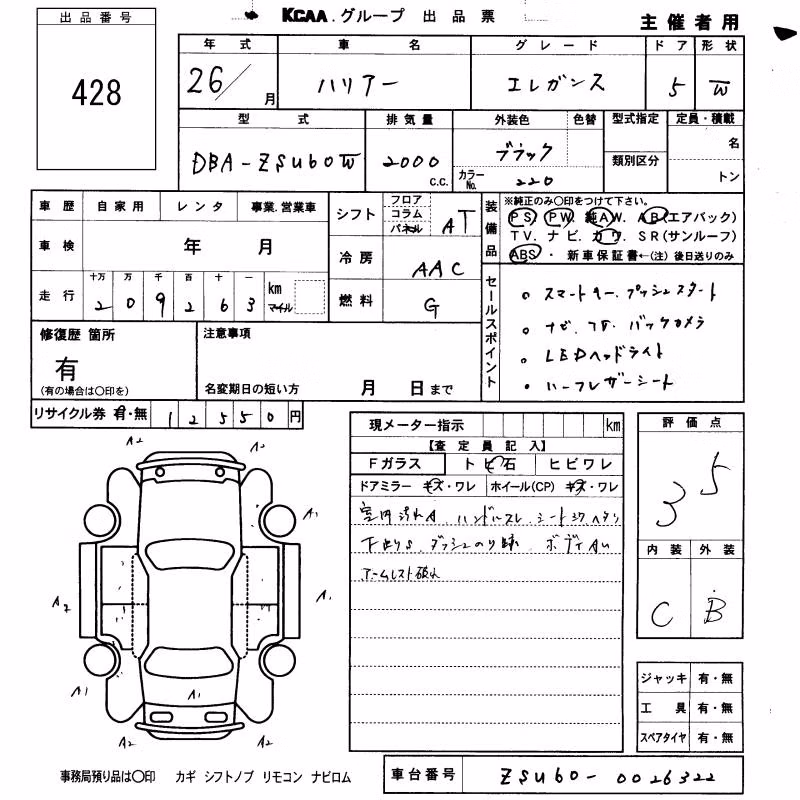 出品番号
KCAA.グループ 出品票
主催者用
428
年式 車名 グレード ドア 形状
26/ 月 ハリアー エレガンス 5 W
型式 排気量 外装色 色替 型式指定 定員・積載
DBA-ZSU60W 2000 c.c. ブラック 名
カラーNo. 220 類別区分 トン
車歴 自家用 レンタ 事業.営業車
シフト フロア コラム パネル AT
装備品 ※純正のみ○印をつけて下さい。
PS. PW. 純AW. AB(エアバック)
TV. ナビ. カワ. SR(サンルーフ)
ABS・ 新車保証書←(注)後日送りのみ
車検 年 月
冷房 AAC
走行 十万 万 千 百 十 一
209263 km マイル
燃料 G
セールスポイント
。スマートキー.プッシュスタート
。ナビ.TV.バックカメラ
。LEDヘッドライト
。ハーフレザーシート
修復歴 箇所
有
(有の場合は○印を)
注意事項
名変期日の短い方 月 日まで
リサイクル券 有・無 12550円
現メーター指示 km
【査定員記入】
Fガラス トビ石 ヒビワレ
ドアミラー キズ・ワレ ホイール(CP) キズ・ワレ
室内汚れA. ハンドルスレ. シート スワヘタリ
下廻りS. ダッシュのり跡. ボディAU
アームレスト破れ
評価点
3.5
内装 外装
C B
A2 A2
A1
A2 A1
A1 A1 A1
A2 A2
ジャッキ 有・無
工具 有・無
スペアタイヤ 有・無
事務局預り品は○印 カギ シフトノブ リモコン ナビロム
車台番号 ZSU60-0026322